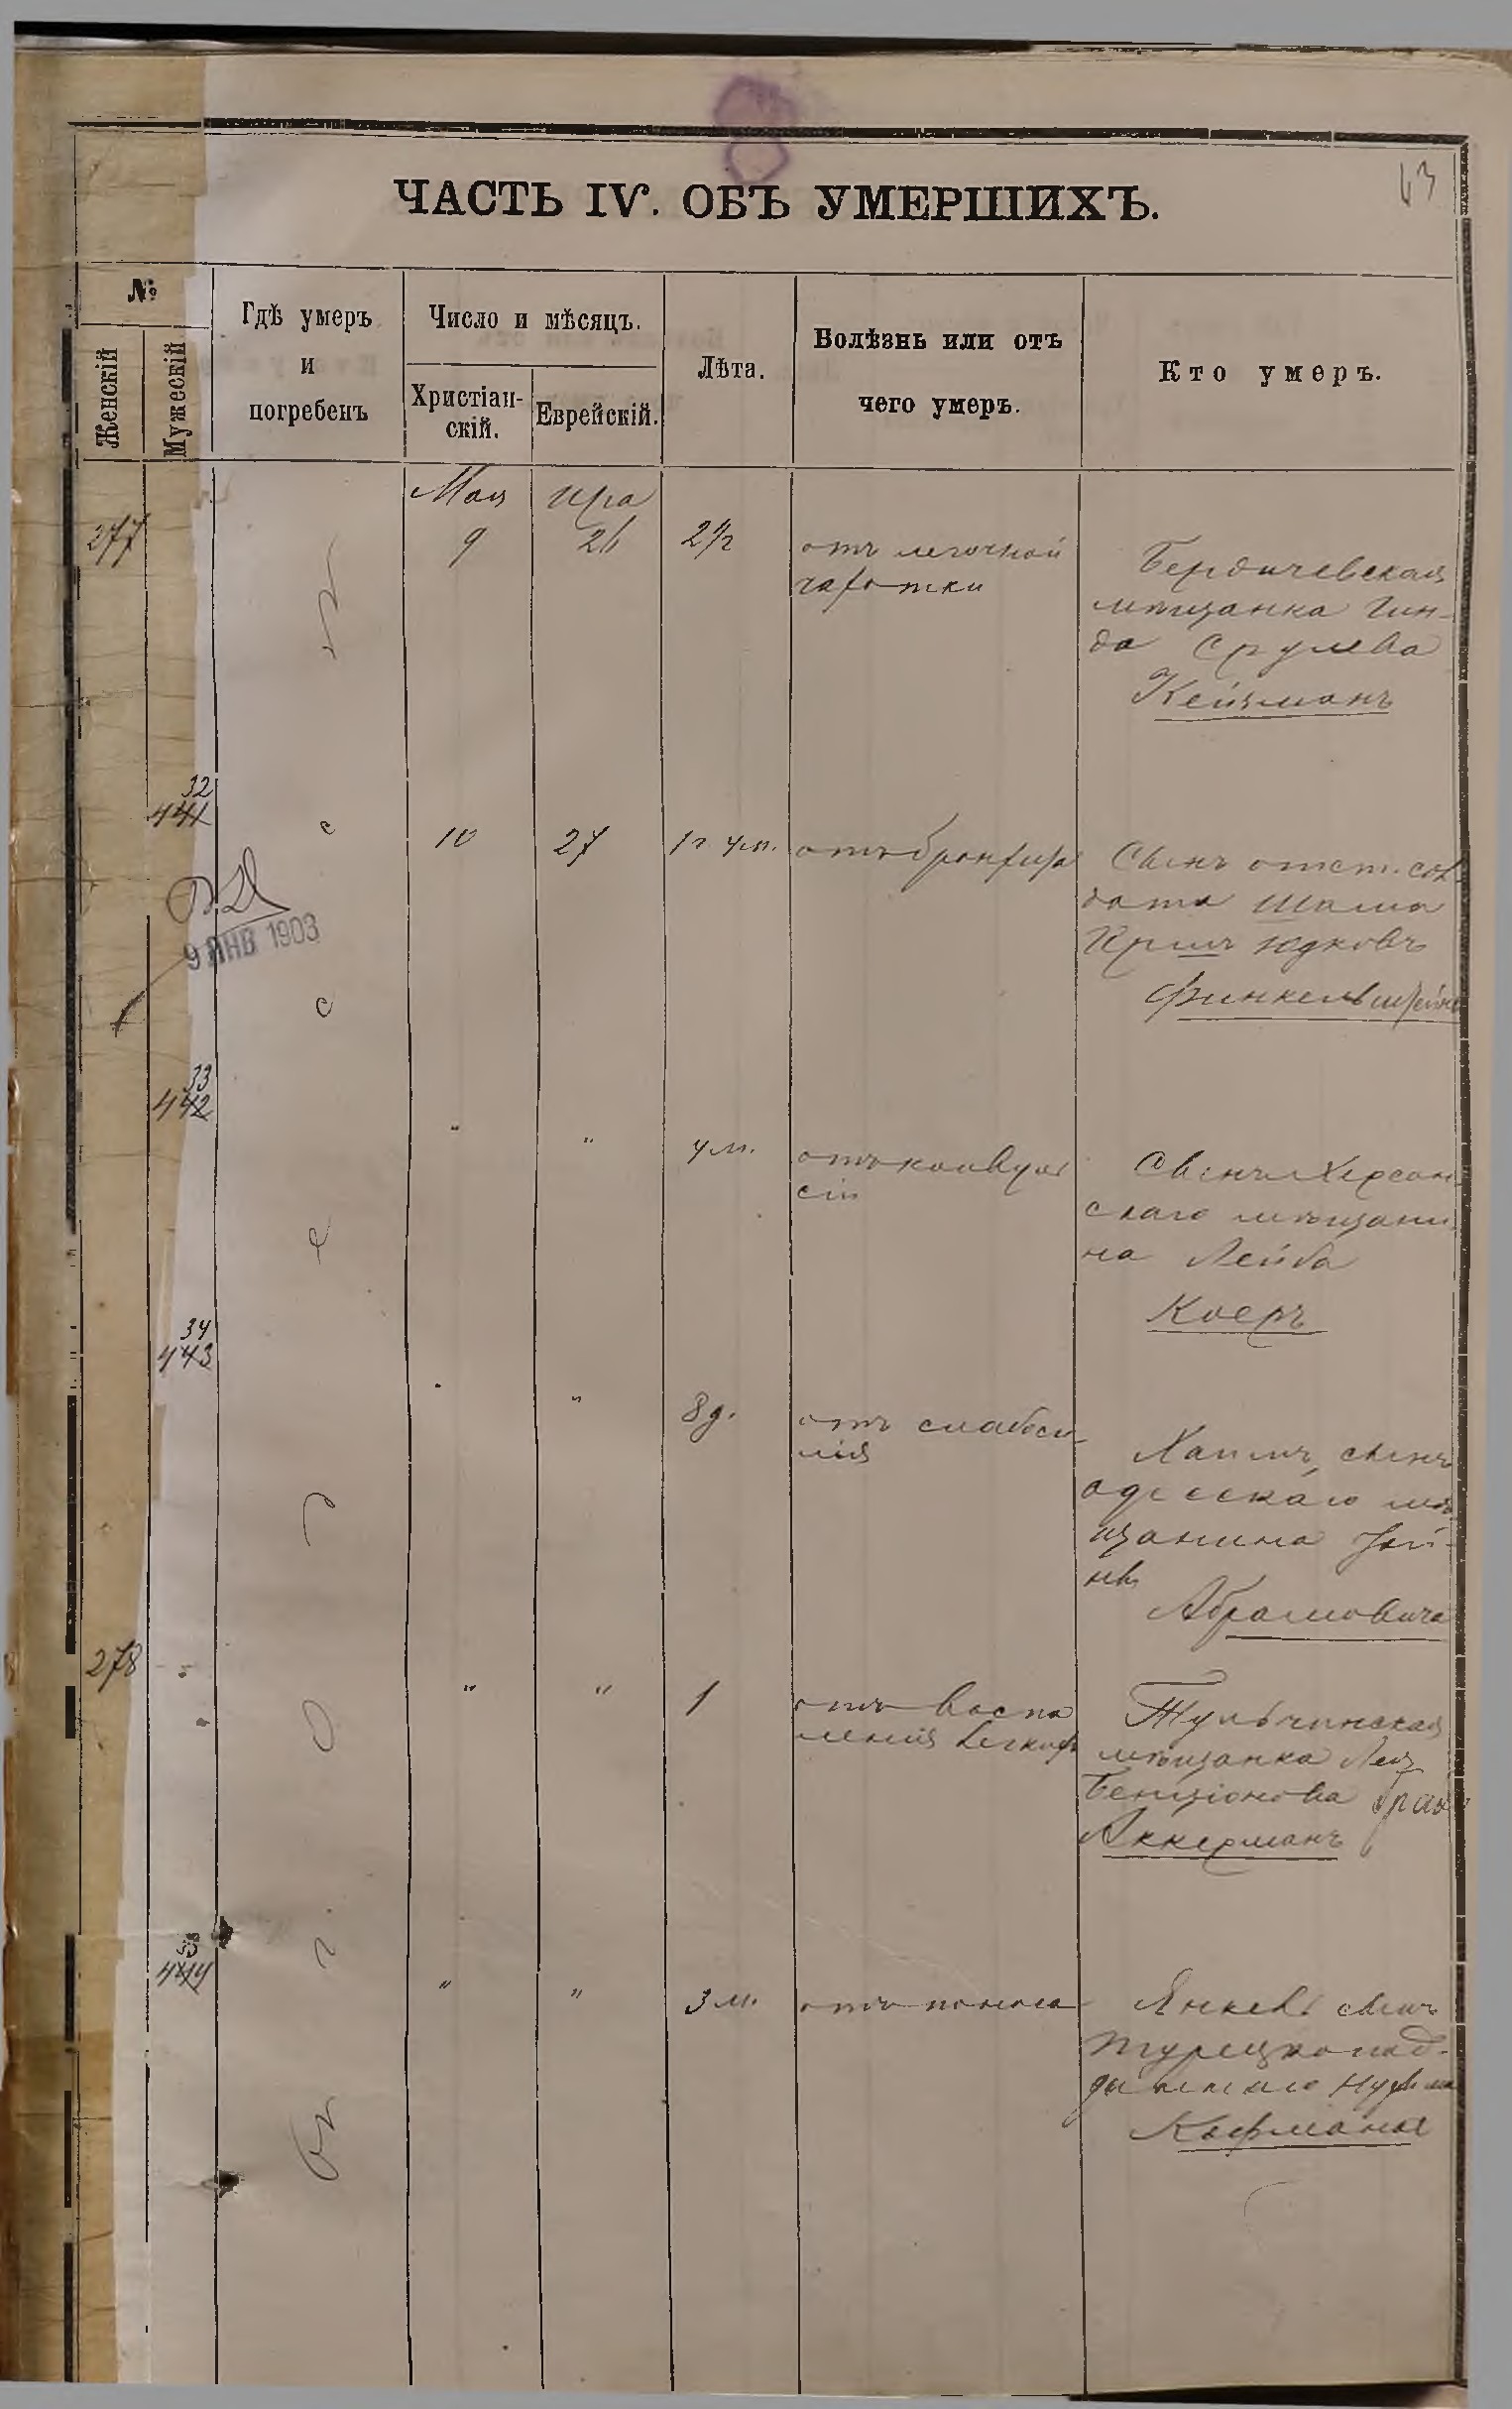 63
ЧАСТЬ IV. ОБЪ УМЕРШИХЪ.
№
Женскій
Мужескій
Гдѣ умеръ
и
погребенъ
Число и мѣсяцъ.
Христіан-
скій.
Еврейскій.
Лѣта.
Болѣзнь или отъ
чего умеръ.
Кто умеръ.
Мая
Ира
277
9
26
отъ легочной
чахотки
Бердичевская
мѣщанка Гин-
да Срулева
Кейзманъ
32
441
10
27
отъ бронхита
Сынъ отст. сол
дата
Юдковъ
Финкельштейнъ
9 ЯНВ 1903
33
442
"
"
4 м.
отъ конвул
сій
Сынъ Херсон
скаго мѣщани
на Лейба
Коеръ
34
443
"
8 д.
отъ слабоси-
лія
Хаимъ, сынъ
одесскаго мѣ
щанина
Абрамовича
278
"
"
1
отъ воспа
ленія легкихъ
Тульчинская
мѣщанка Лея
Бенціонова
Аккерманъ
35
444
"
"
3 м.
отъ поноса
Янкель сынъ
турецкопод-
даннаго
Кофмана